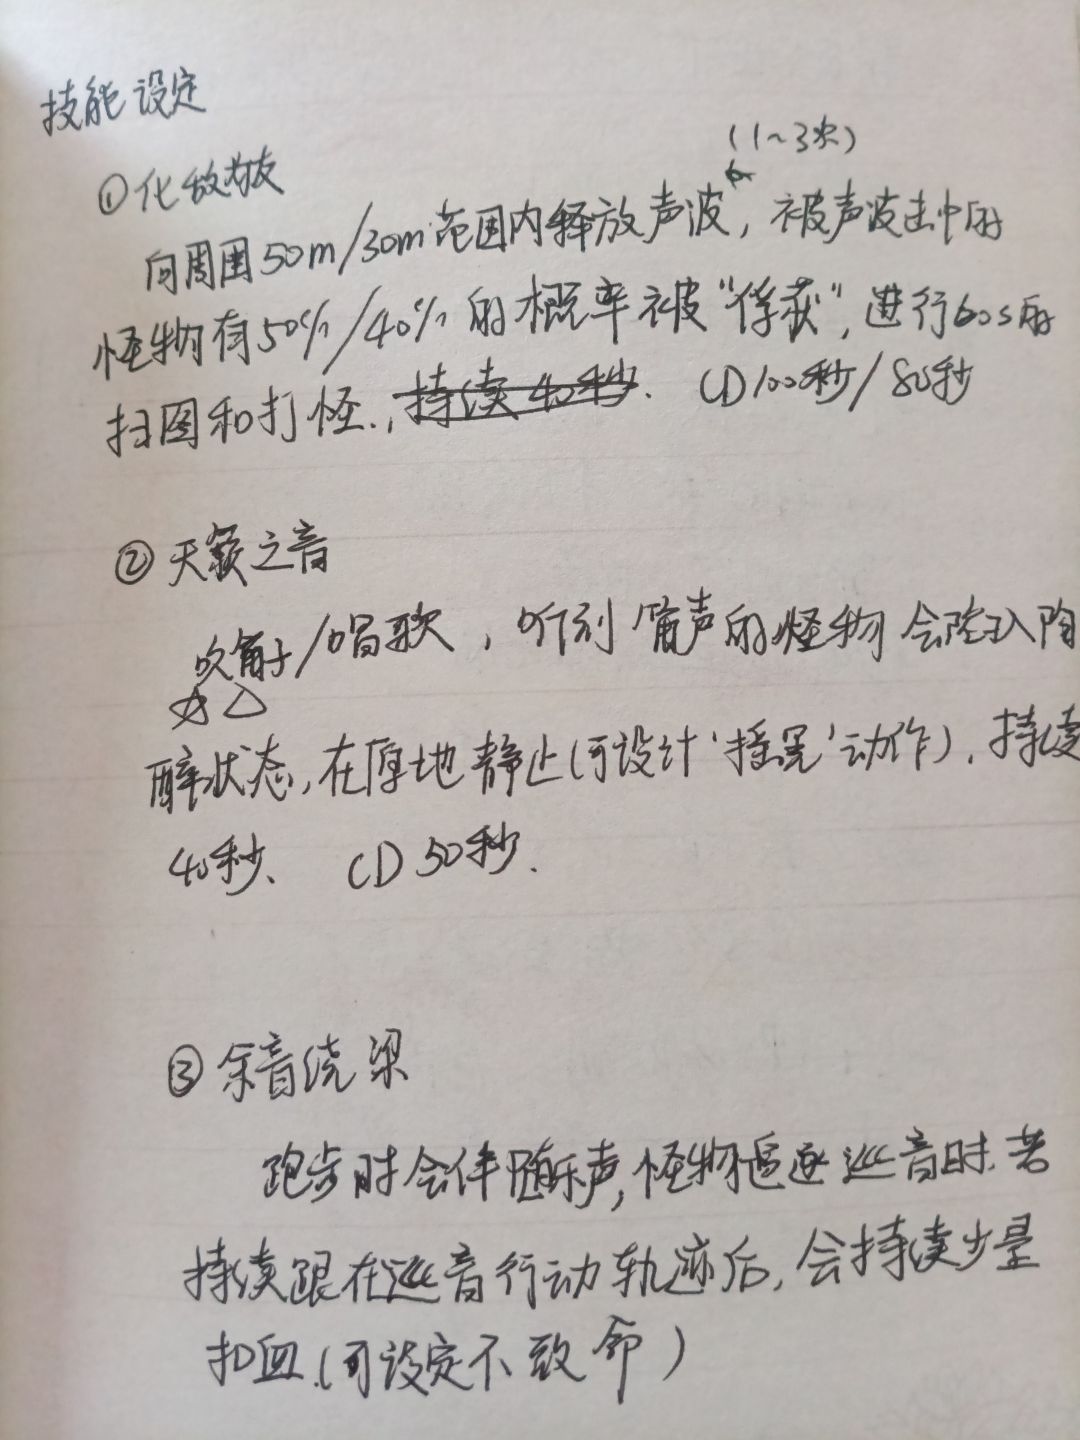 技能设定
①化敌为友
(1~3次)
向周围50m/30m范围内释放声波，被声波击中的
怪物有50%/40%的概率被“俘获”，进行60s的
扫图和打怪.，持续40秒. CD100秒/80秒
②天籁之音
吹笛子/唱歌，听到笛声的怪物会陷入陶
醉状态，在原地静止(可设计‘摇晃’动作)，持续
40秒、 CD 50秒.
③余音绕梁
跑步时会伴随乐声，怪物追逐巡音时.若
持续跟在巡音行动轨迹后，会持续少量
扣血.(可设定不致命)